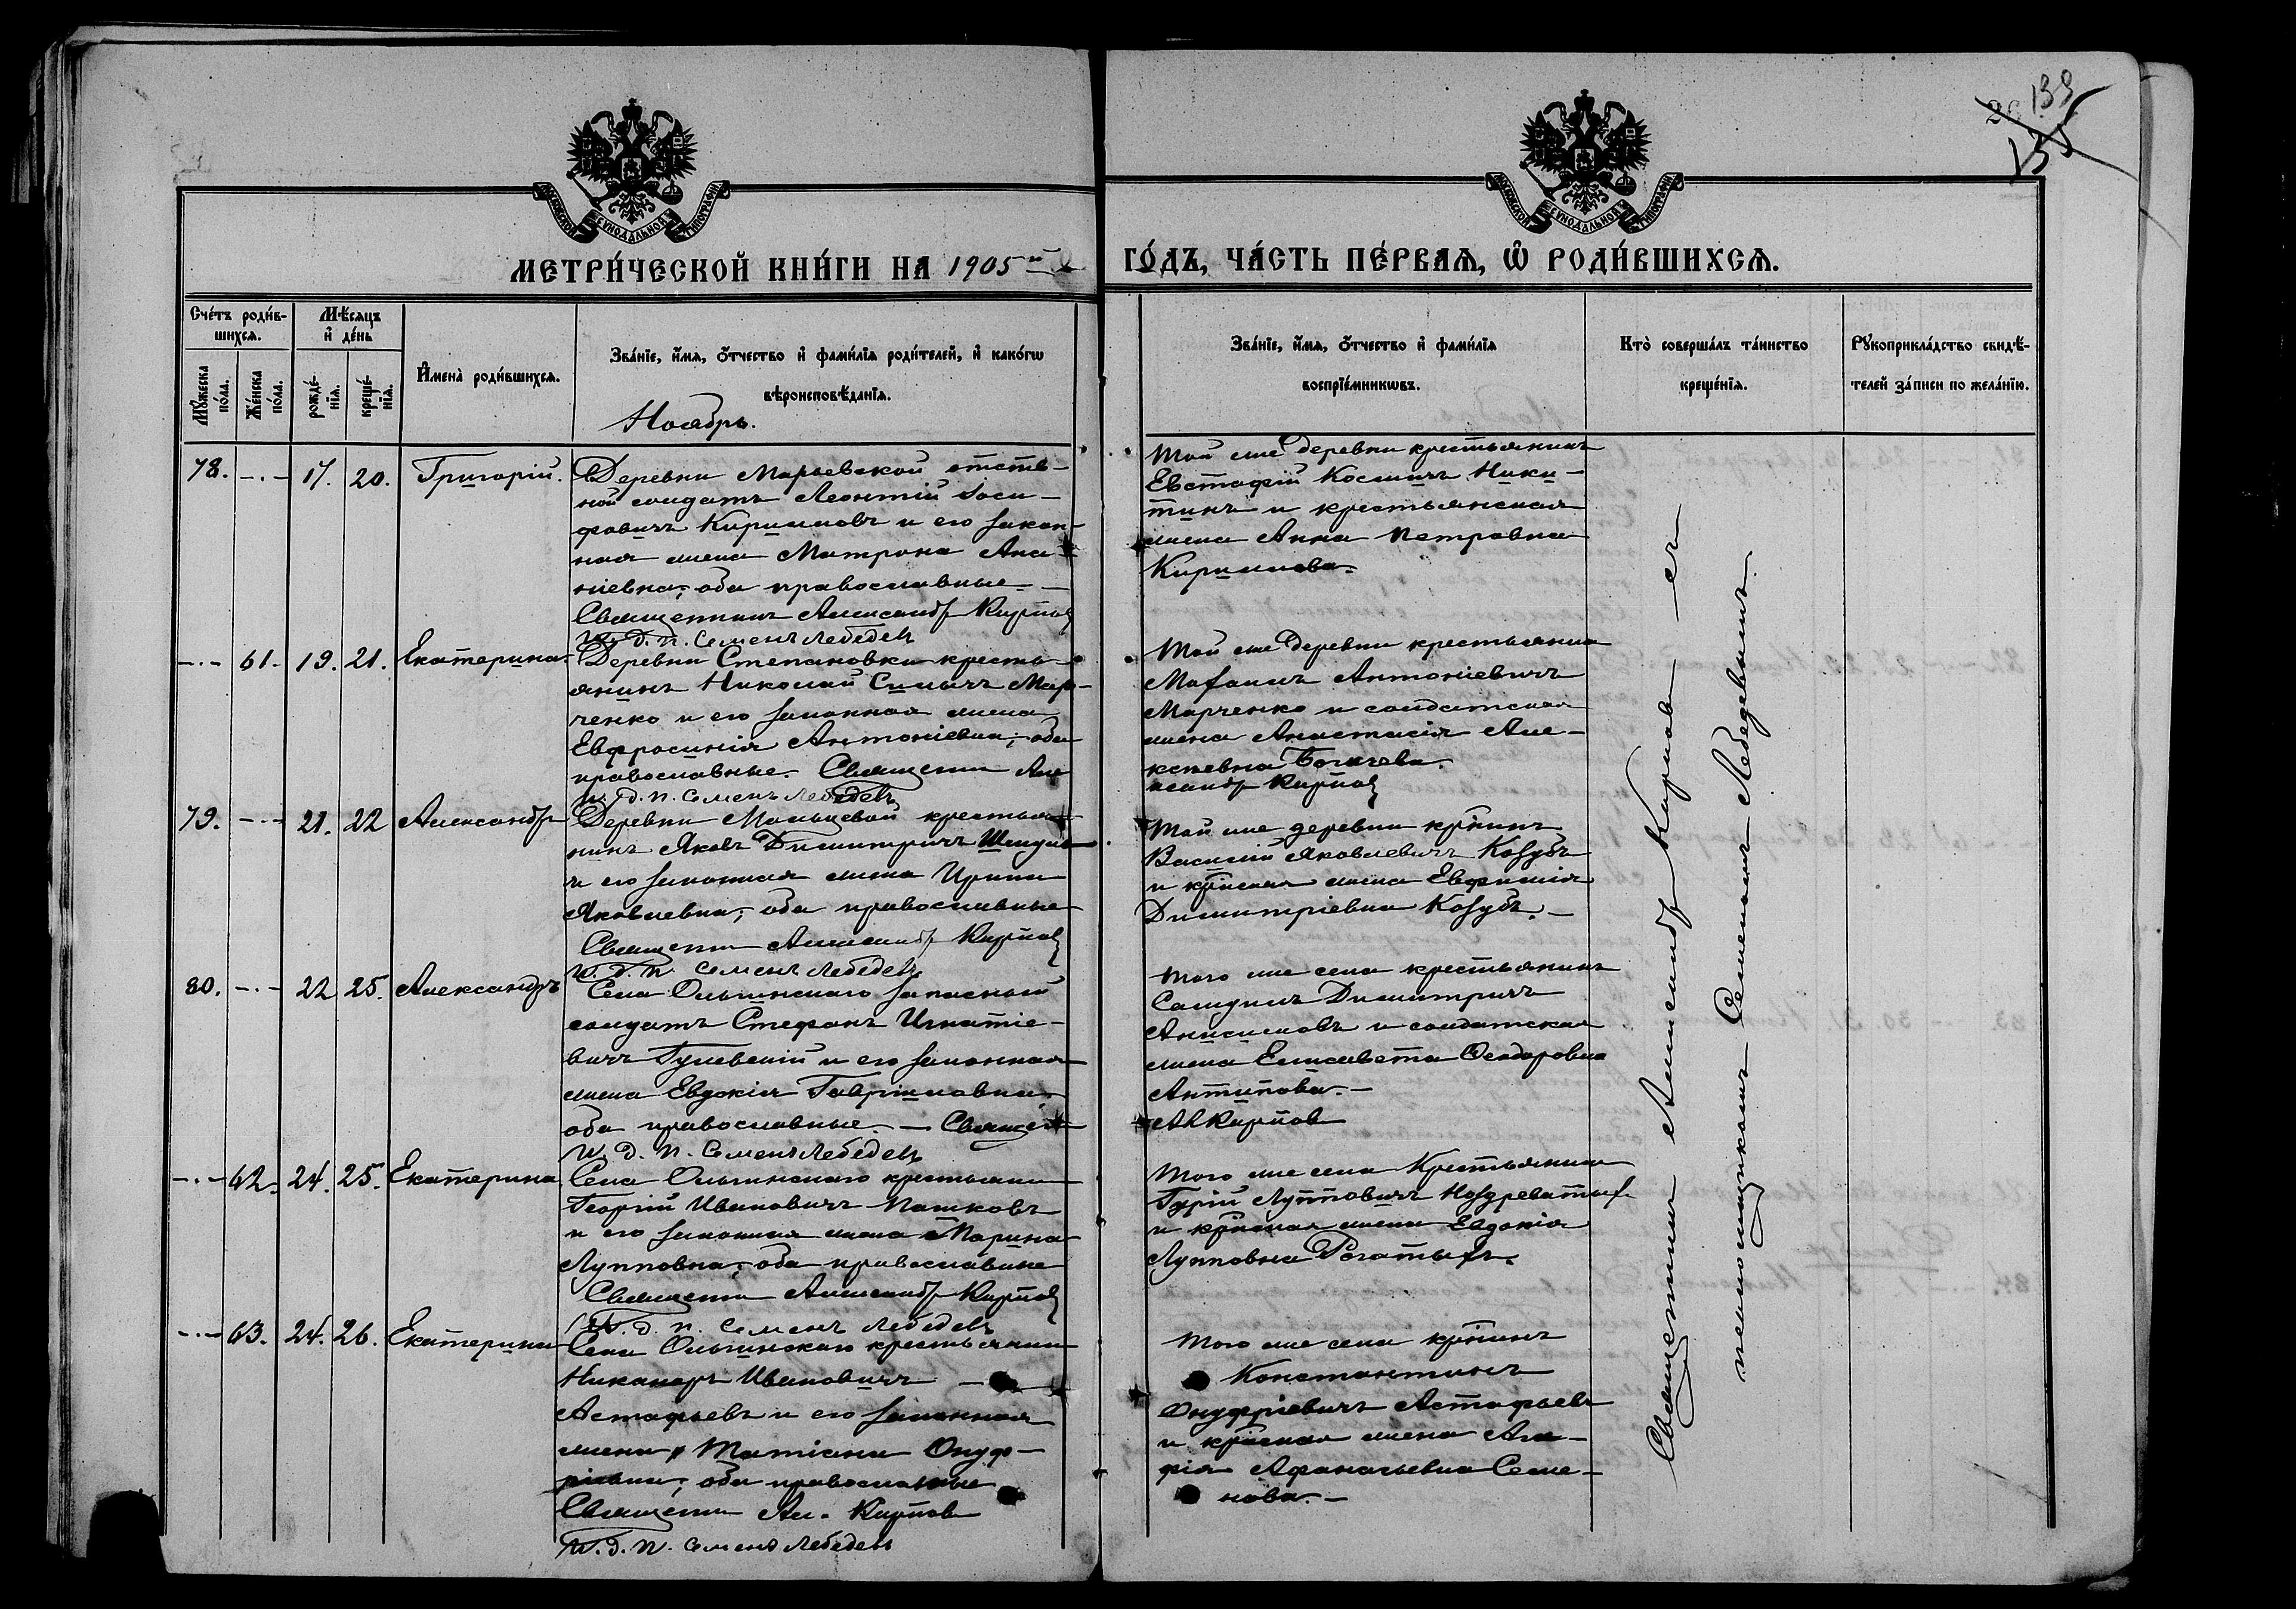 138
135
МОСКОВСКОЙ СУНОДАЛЬНОЙ ТИПОГРАФІИ
МОСКОВСКОЙ СУНОДАЛЬНОЙ ТИПОГРАФІИ
МЕТРИ́ЧЕСКОЙ КНИ́ГИ НА 1905 й
ГО́ДЪ, ЧА́СТЬ ПЕ́РВАЯ, Ѡ РОДИ́ВШИХСЯ.
Сче́тъ роди́в-
шихся.
Му́жеска по́ла.
Же́нска по́ла.
Мѣ́сяцъ
и҆ де́нь
рожде́-
нїя.
креще́-
нїя.
И҆мена̀ роди́вшихся.
Зва́нїе, и҆́мя, ѻ҆́тчество и҆ фами́лїя роди́телей, и҆ како́гѡ
вѣроисповѣ́данїя.
Зва́нїе, и҆́мя, ѻ҆́тчество и҆ фами́лїя
воспрїе́мникѡвъ.
Кто̀ соверша́лъ та́инство
креще́нїя.
Рꙋкоприкла́дство свидѣ́-
телей за́писи по жела́нїю.
Ноябрь.
78. -.- 17. 20. Григорій.
Деревни Марьевской отстав-
ной солдатъ Леонтій Іоси-
фовичъ Кирилловъ и его закон-
ная жена Матрона Ана-
ніевна; оба православные
Священникъ Александръ Карпов
И. д. п. Семенъ Лебедевъ
Той же деревни крестьянинъ
Евстафій Космичъ Ники-
тинъ и крестьянская
жена Анна Петровна
Кириллова.
-.- 61. 19. 21. Екатерина.
Деревни Степановки кресть-
янинъ Николай Силычъ Мар-
ченко и его законная жена
Евфросинія Антоніевна; оба
православные. Священни Але
И. д. п. Семенъ Лебедевъ
Той же деревни крестьянин
Антоніевичъ
Марченко и солдатская
жена Анастасія Але-
ксѣевна Богачева.
ксандр Карпов
79. -.- 21. 22 Александръ
Деревни крестья-
нинъ Яковъ Димитричъ
и его законная жена Ирина
Яковлевна; оба православные
Священни Александр Карпов
И. д. п. Семенъ Лебедевъ
Той же деревни кр-нинъ
Василій Яковлевичъ Козубъ
и кр-ская жена Евфимія
Димитріевна Козубъ. —
80. -.- 22 25. Александръ
Села Ольгинскаго запасный
солдатъ Стефанъ Игнатіе-
вичъ и его законная
жена Евдокія Гавріиловна;
оба православные. — Священ
И. д. п. Семенъ Лебедевъ
Того же села крестьянинъ
Димитричъ
Анисимовъ и солдатская
жена Елисавета Феодоровна
Антипова. —
Ал Карпов
-.- 62. 24. 25. Екатерина
Села Ольгинскаго крестьянин
Георгій Ивановичъ Пашковъ
и его законная жена Марина
Лупповна; оба православные
Священни Александр Карпов
И. д. п. Семенъ Лебедевъ
Того же села Крестьянин
Гурій Лупповичъ Ноздреватых
и кр-ская жена Евдокія
Лупповна Рогатыхъ.
-.- 63. 24. 26. Екатерина
Села Ольгинскаго крестьянин
Никаноръ Ивановичъ —
Астафьевъ и его законная
жена Татіана Онуф-
ріевна; оба православные
Священни Ал. Карпов
И. д. п. Семенъ Лебедевъ
Того же села кр-нинъ
Константинъ
Онуфріевичъ Астафьевъ
и кр-ская жена
Афанасьевна Семе-
нова. —
Священникъ Александръ Карповъ — съ
псаломщикомъ Семеномъ Лебедевымъ